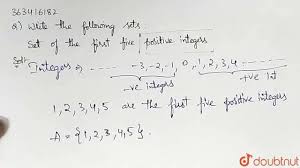 363416182
a) Write the following sets
Set of the first five positive integers
Solⁿ:
Integers → ------ -3, -2, -1, 0, 1, 2, 3, 4 -----
-ve Integers +ve Int
1, 2, 3, 4, 5 are the first five positive integers
A = {1, 2, 3, 4, 5}.
doubtnut